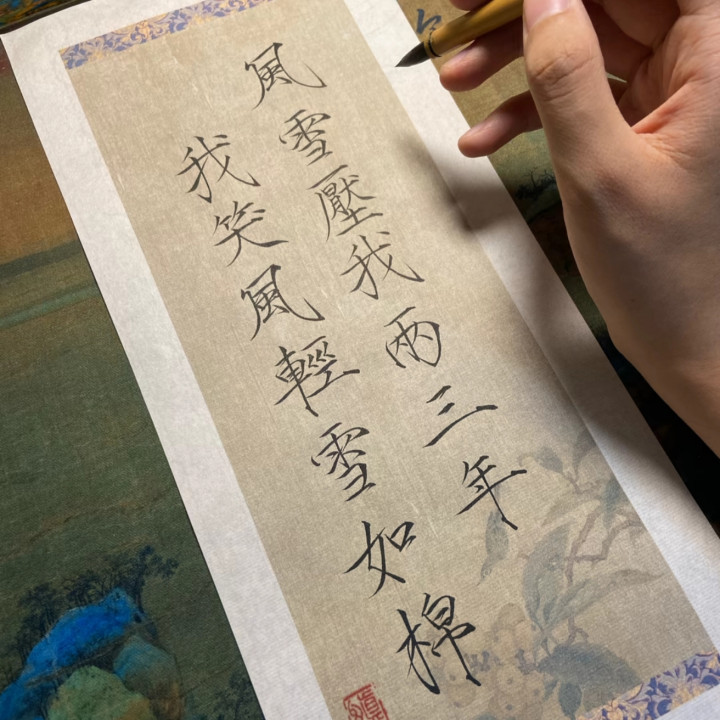 風雪壓我兩三年
我笑風輕雪如棉